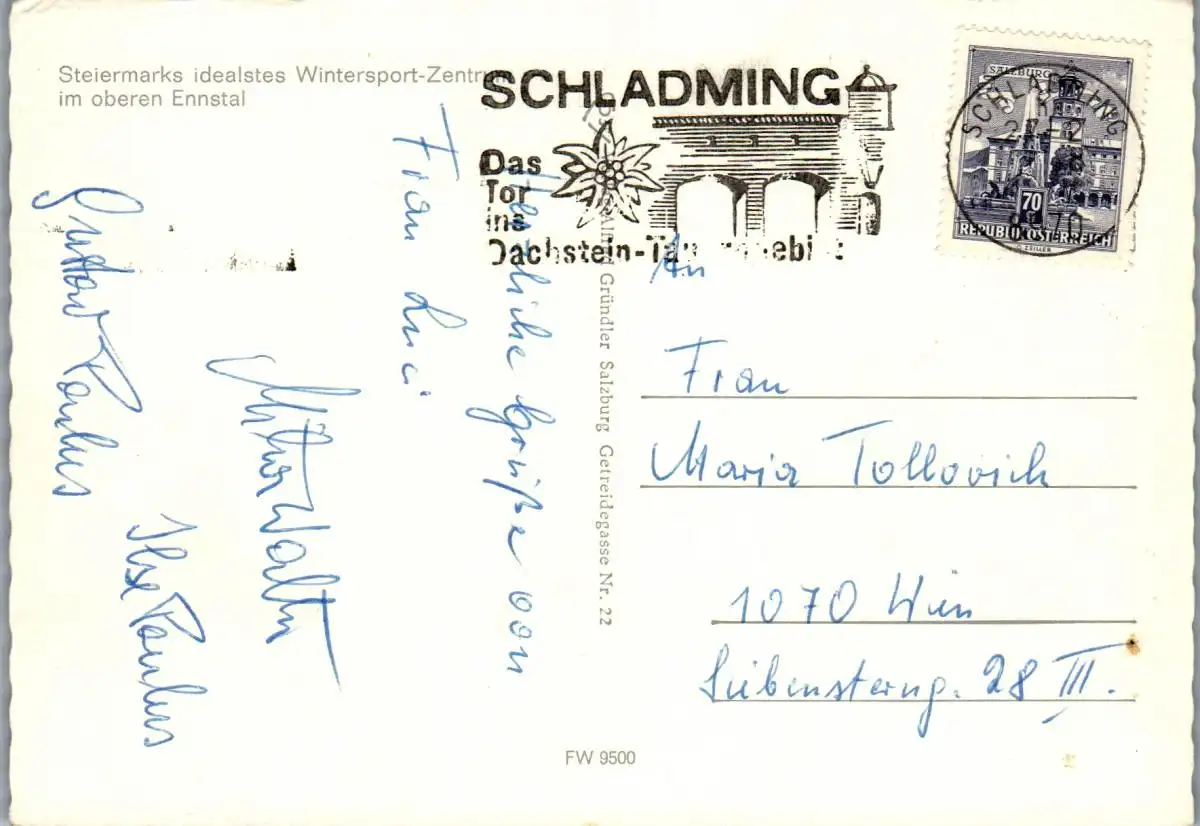 Steiermarks idealstes Wintersport-Zentrum
im oberen Ennstal
SCHLADMING
Das
Tor
ins
Dachstein-Tauerngebiet
SALZBURG
70
REPUBLIK ÖSTERREICH
SCHLADMING
Frau Luci
Herzliche Grüße von
Walter
Gustav Paulus
Ilse Paulus
Gründler Salzburg Getreidegasse Nr. 22
An
Frau
Maria Tollovich
1070 Wien
Siebensterng. 28 III.
FW 9500